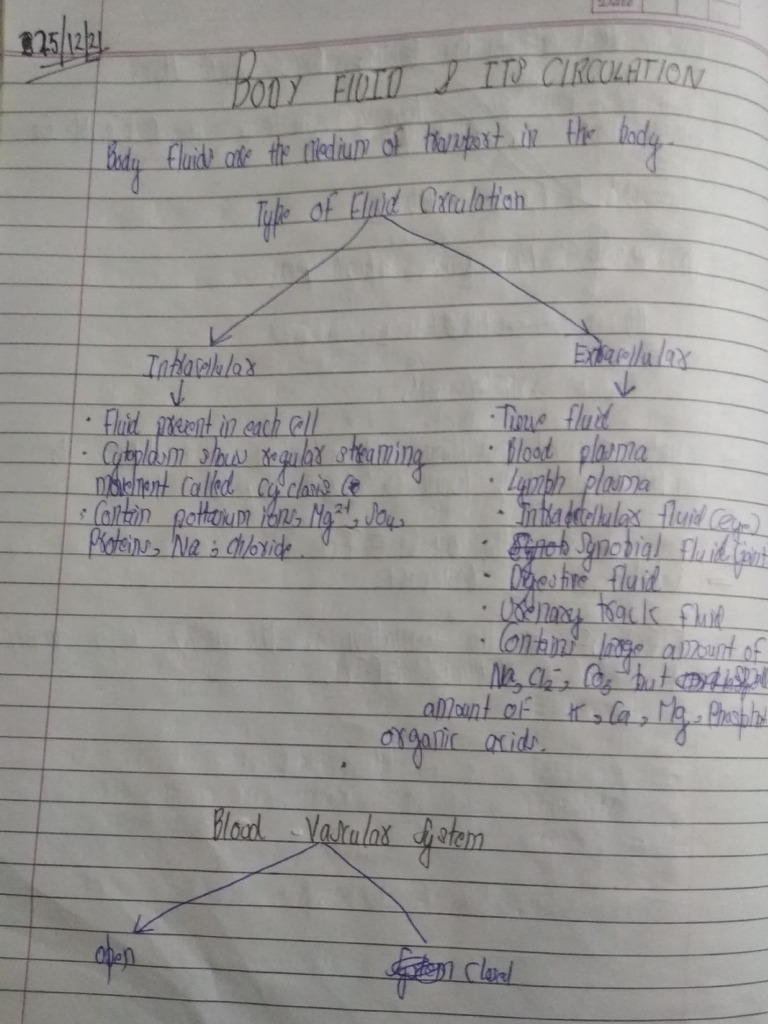 25/12/21
BODY FlUID & ITS CIRCULATION
Body fluids are the medium of transport in the body.
Type of Fluid Circulation
Intracellular
Extracellular
· Fluid present in each cell
· Tissue fluid
· Cytoplasm show regular streaming
· Blood plasma
movement called cyclosis
· Lymph plasma
· Contain pottasium ions, Mg2+, SO4,
· fluid (eye)
Proteins, Na ; chloride.
· Synobial fluid (joint
· Digestive fluid
· Urenary track fluid
· Contains large amount of
Na, Cl2-, CO3- but
amount of K, Ca, Mg, Phospha
organic acids.
Blood - Vascular System
open
Closed